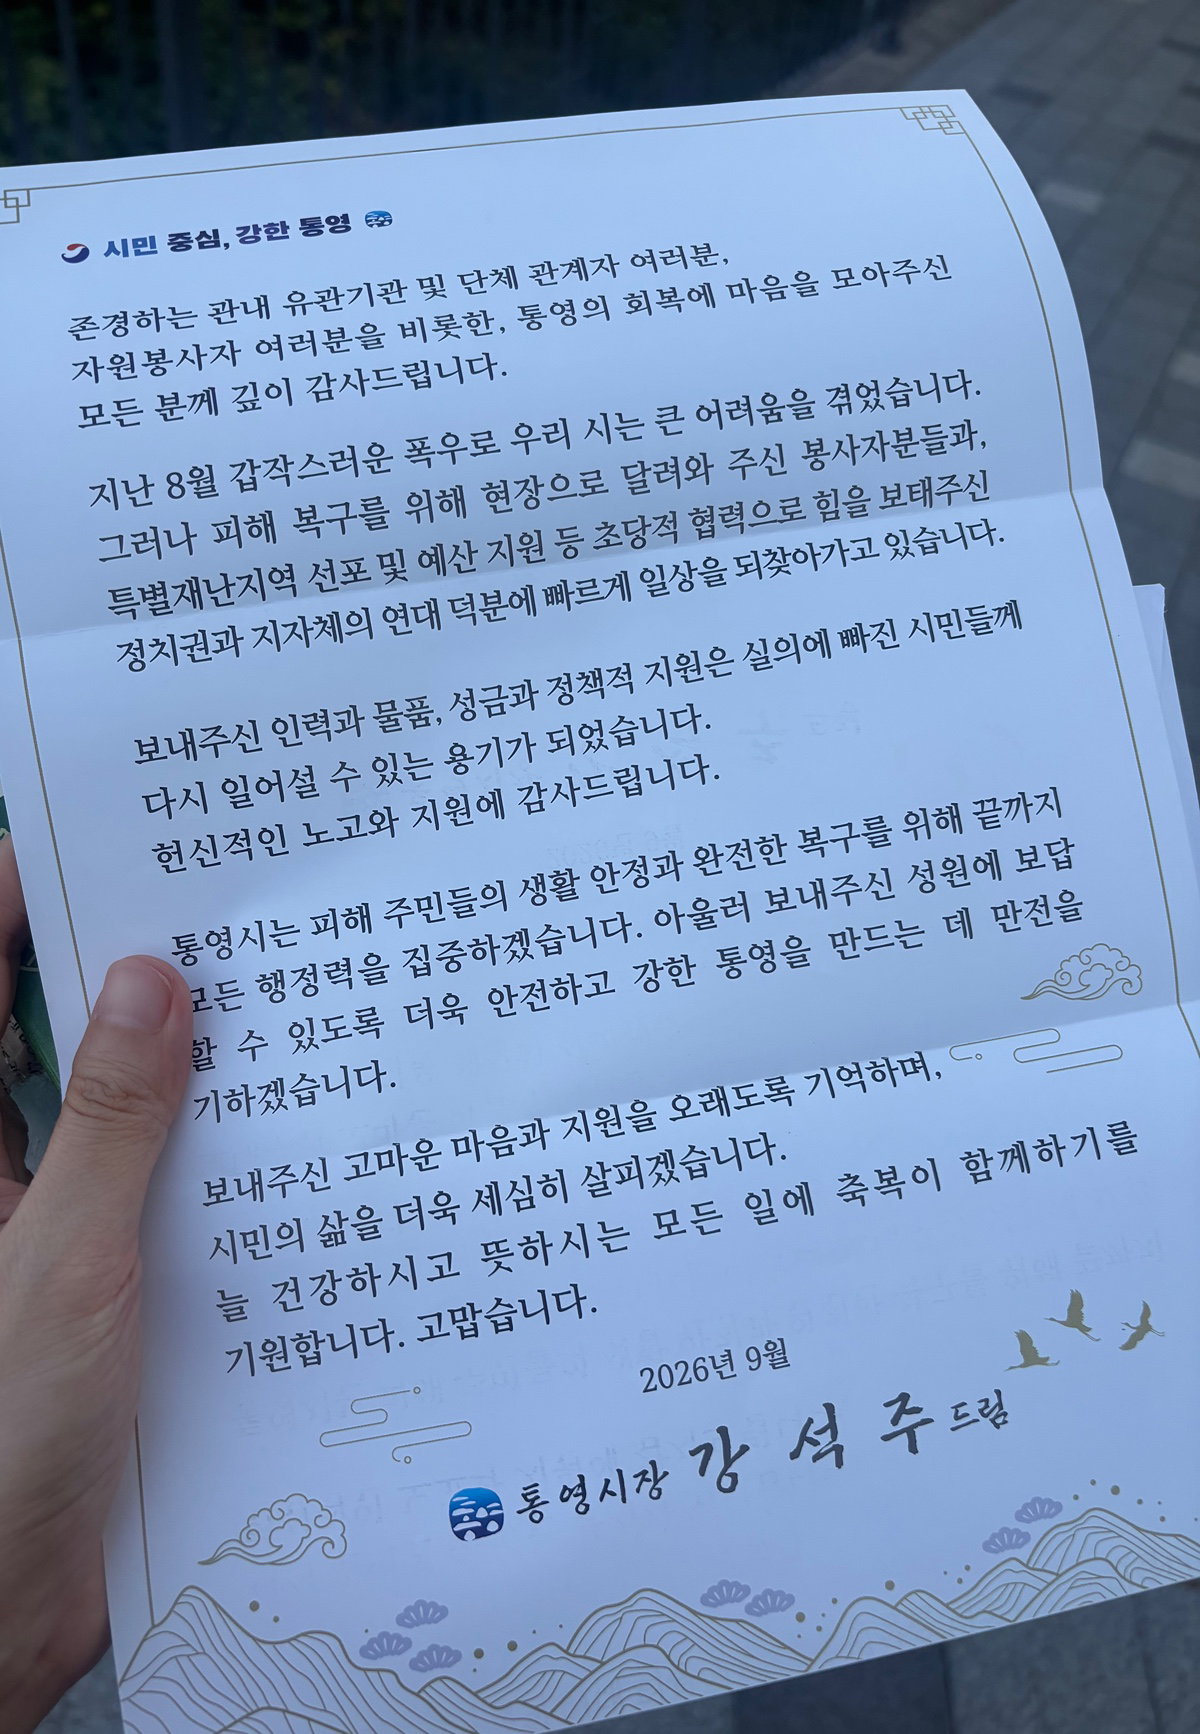 시민 중심, 강한 통영
존경하는 관내 유관기관 및 단체 관계자 여러분,
자원봉사자 여러분을 비롯한, 통영의 회복에 마음을 모아주신
모든 분께 깊이 감사드립니다.
지난 8월 갑작스러운 폭우로 우리 시는 큰 어려움을 겪었습니다.
그러나 피해 복구를 위해 현장으로 달려와 주신 봉사자분들과,
특별재난지역 선포 및 예산 지원 등 초당적 협력으로 힘을 보태주신
정치권과 지자체의 연대 덕분에 빠르게 일상을 되찾아가고 있습니다.
보내주신 인력과 물품, 성금과 정책적 지원은 실의에 빠진 시민들께
다시 일어설 수 있는 용기가 되었습니다.
헌신적인 노고와 지원에 감사드립니다.
통영시는 피해 주민들의 생활 안정과 완전한 복구를 위해 끝까지
모든 행정력을 집중하겠습니다. 아울러 보내주신 성원에 보답
할 수 있도록 더욱 안전하고 강한 통영을 만드는 데 만전을
기하겠습니다.
보내주신 고마운 마음과 지원을 오래도록 기억하며,
시민의 삶을 더욱 세심히 살피겠습니다.
늘 건강하시고 뜻하시는 모든 일에 축복이 함께하기를
기원합니다. 고맙습니다.
2026년 9월
통영시장 강석주 드림